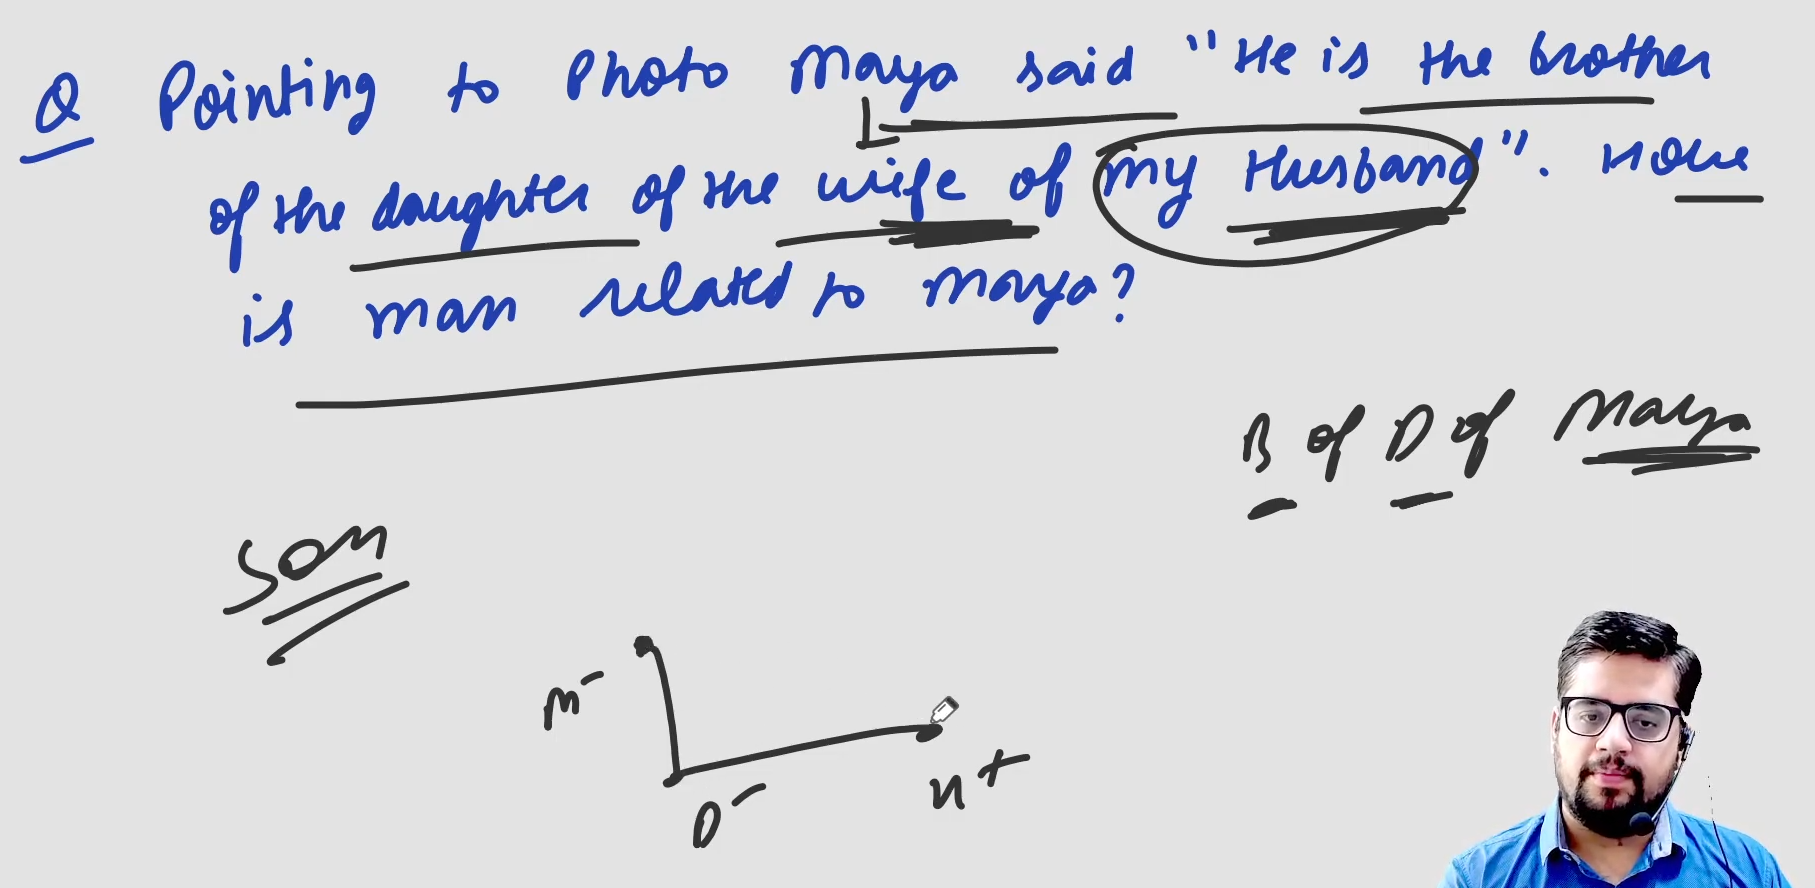 Q Pointing to Photo Maya said "He is the brother
of the daughter of the wife of my Husband". How
is man related to Maya?
B of D of Maya
Son
M-
D-
H+